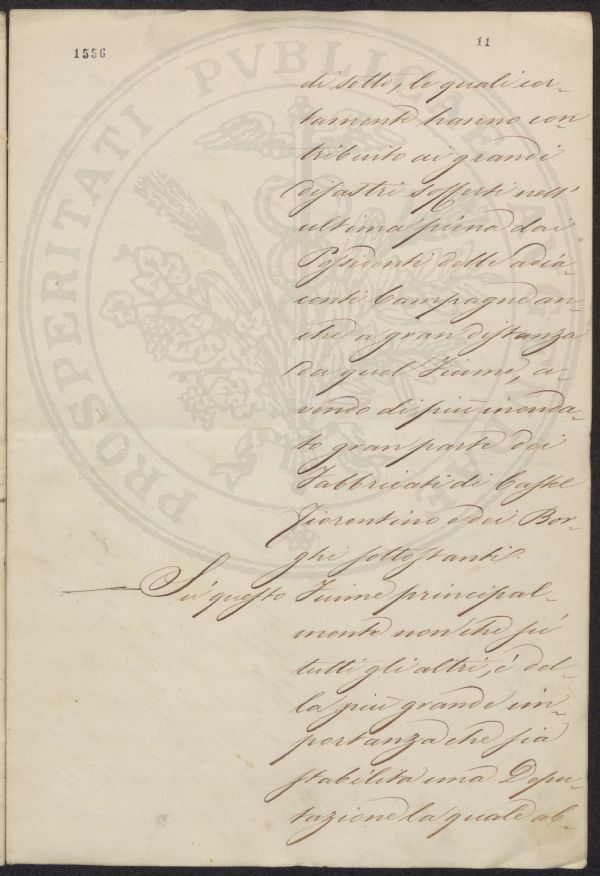 1556
11
di sotto, le quali cer-
tamente hanno con-
tribuito ai grandi
disastri sofferti nell'
ultima piena dai
Possidenti delle adia-
centi Campagne an-
che a gran distanza
da quel Fiume, a-
vendo di più inonda-
to gran parte dei
Fabbricati di Castel
fiorentino e dei Bor-
ghi sottostanti.
Sú questo Fiume principal-
mente non che sú
tutti gli altri, é del-
la più grande im-
portanza che sia
stabilita una Depu-
tazione la quale ab-
PROSPERITATI PVBLICAE